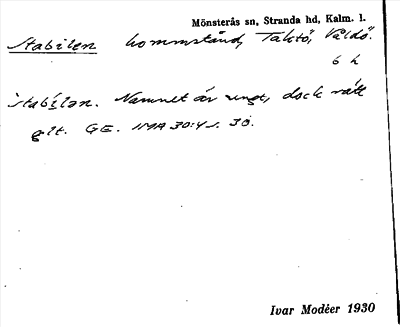 Mönsterås sn, Stranda hd, Kalm. l.
Stabilen kommstånd, Taktö, Våldö.
6 h
stabílen. Namnet är ungt, dock rätt
glt. GE. IMA 30:4 s. 30.
Ivar Modéer 1930